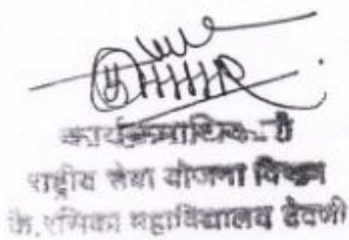 कार्यक्रमाधिकारी
राष्ट्रीय सेवा योजना विभाग
कै. रसिका महाविद्यालय देवणी